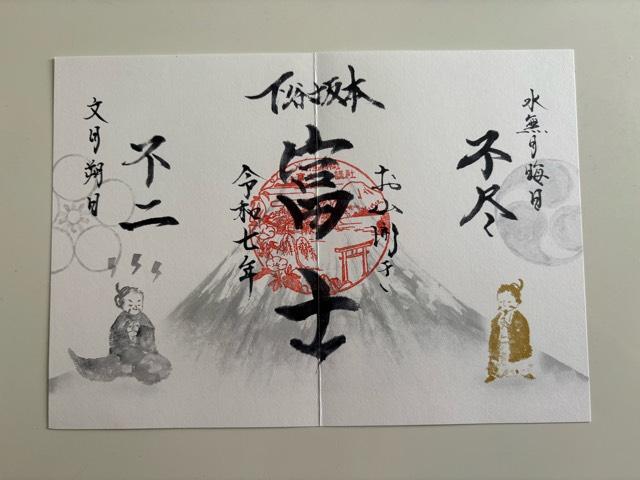 水無月晦日
不尽
お山開き
下谷坂本
富士
令和七年
不二
文月朔日